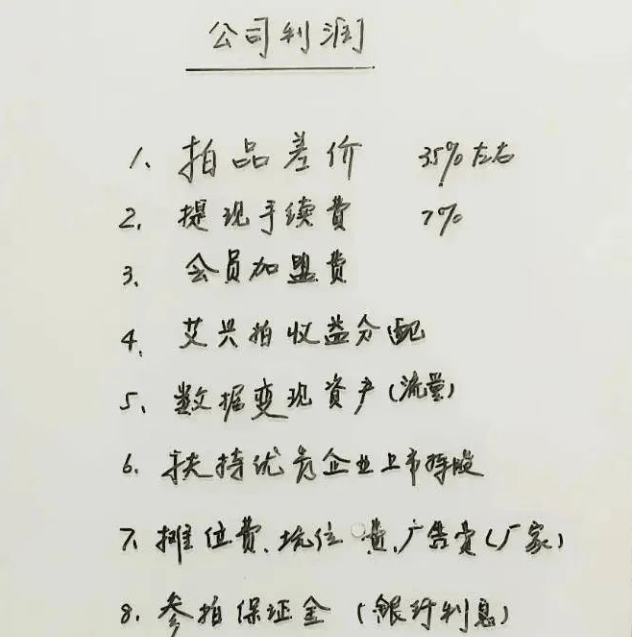 公司利润
1、拍品差价 35%左右
2、提现手续費 7%
3、会员加盟費
4、艾兴拍收益分配
5、数据变现資产(流量)
6、扶持优质企业上市持股
7、摊位費、坑位費、广告费(厂家)
8、参拍保证金(銀行利息)